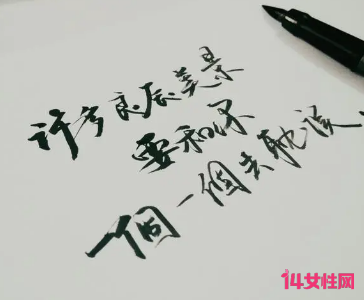 许多良辰美景
要和你
一個一個去耽误
14女性网